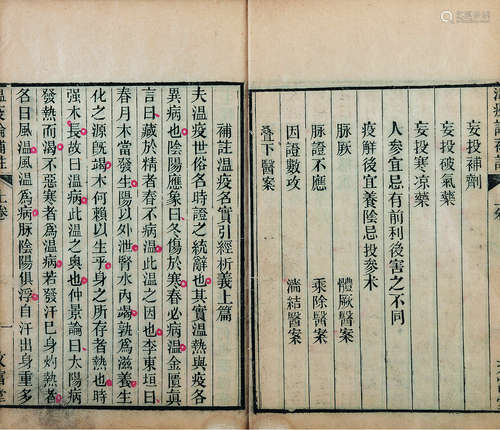 妄投補劑
妄投破氣藥
妄投寒涼藥
人參宜忌有前利後害之不同
疫解後宜養陰忌投參朮
脉厥
體厥醫案
脉證不應
乘除醫案
因證數攻
湍結醫案
叠下醫案
補註溫疫名實引經析義上篇
夫溫疫世俗名時證之統辭也其實溫熱與疫各
異病也陰陽應象曰冬傷於寒春必病溫金匱真
言曰藏於精者春不病溫此溫之因也李東垣曰
春月木當發生陽以外泄腎水內竭孰爲滋養生
化之源旣竭木何賴以生乎身之所存者熱也時
强木長故曰溫病此溫之奥也仲景論曰太陽病
發熱而渴不惡寒者爲溫病若發汗已身灼熱者
名曰風溫風溫爲病脉陰陽俱浮自汗出身重多
溫疫論補註
上卷
一